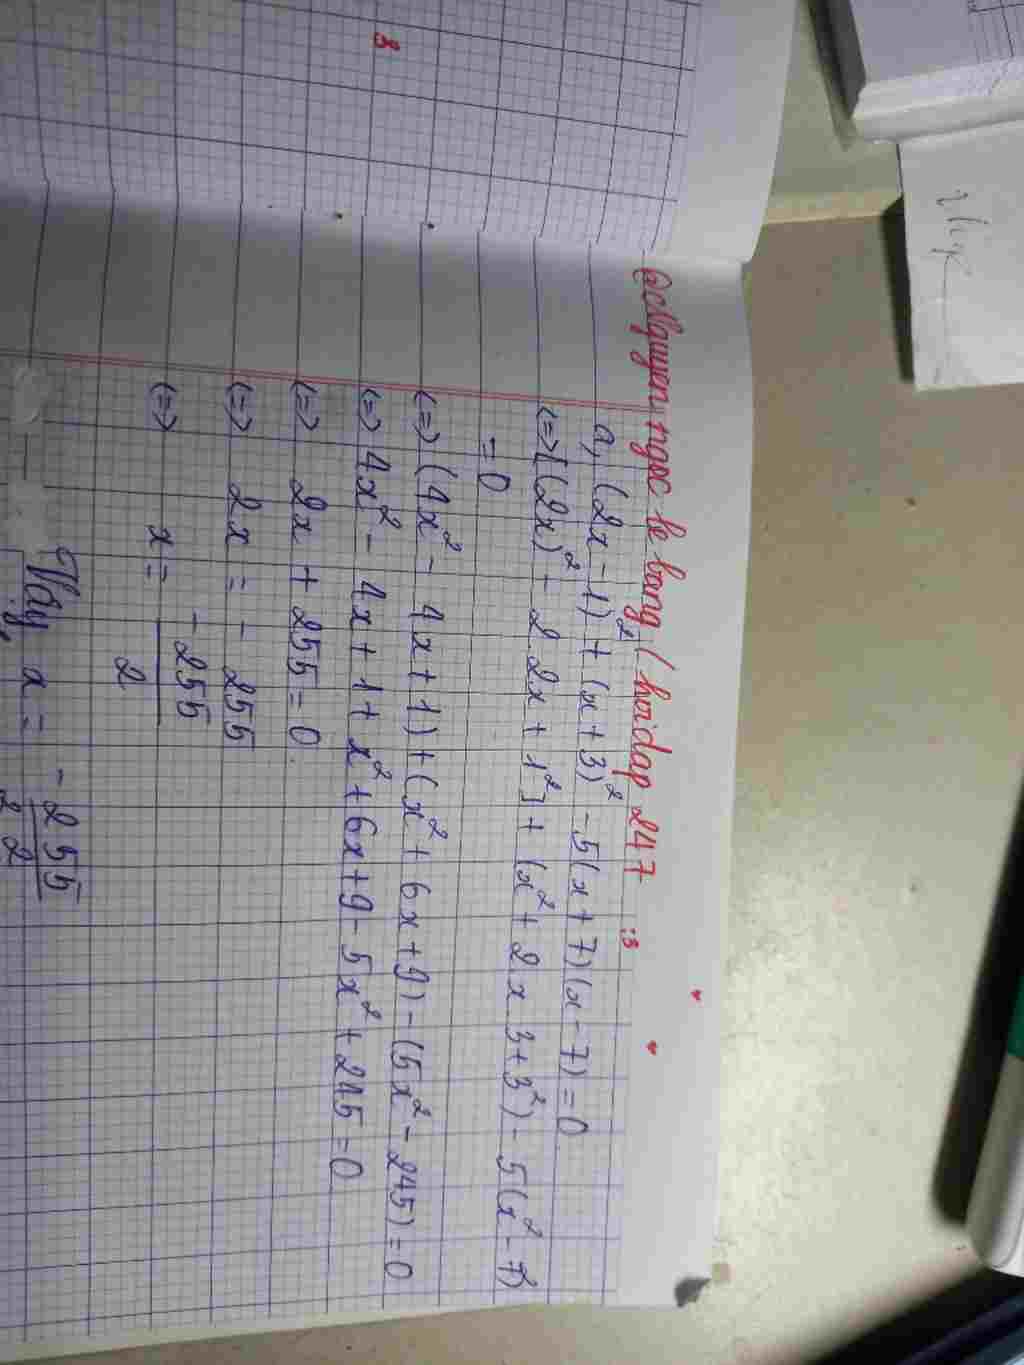 @Nguyen ngoc le bang (hoidap 247
:3
a, (2x - 1)² + (x + 3)² - 5(x + 7)(x - 7) = 0
<=> [(2x)² - 2.2x + 1²] + (x² + 2.x.3 + 3²) - 5(x² - 7²)
= 0
<=> (4x² - 4x + 1) + (x² + 6x + 9) - (5x² - 245) = 0
<=> 4x² - 4x + 1 + x² + 6x + 9 - 5x² + 245 = 0
<=> 2x + 255 = 0
<=> 2x = - 255
<=> x = -255/2
Vậy x = -255/2